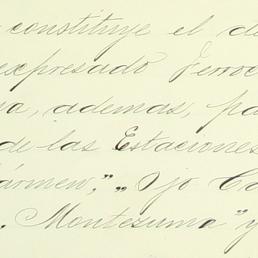 constituye el de
expresado ferroc
ademas, pa
de las Estaciones
ármen," " Ojo Ca
" Montezuma" y